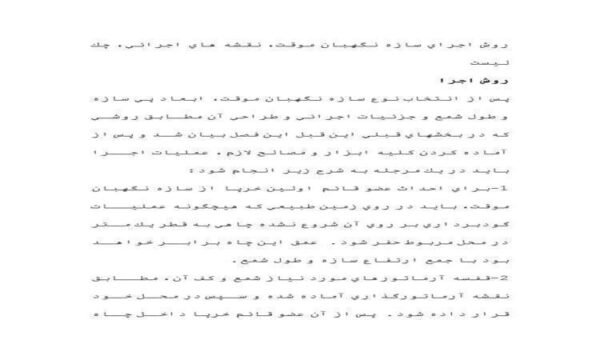 روش اجراي سازه نگهبان موقت، نقشه هاي اجرائي، چك
ليست
روش اجرا
پس از انتخاب نوع سازه نگهبان موقت، ابعاد پي سازه
و طول شمع و جزئيات اجرائي و طراحي آن مطابق روشي
كه در بخشهاي قبلي اين قبل اين فصل بيان شد و پس از
آماده كردن كليه ابزار و مصالح لازم ، عمليات اجرا
بايد در يك مرحله به شرح زير انجام شود :
1-براي احداث عضو قائم اولين خرپا از سازه نگهبان
موقت، بايد در روي زمين طبيعي كه هيچگونه عمليات
گودبرداري بر روي آن شروع نشده چاهي به قطر يك متر
در محل مربوط حفر شود . عمق اين چاه برابر خواهد
بود با جمع ارتفاع سازه و طول شمع.
2-قفسه آرماتورهاي مورد نياز شمع و كف آن، مطابق
نقشه آرماتورگذاري آماده شده و سپس در محل خود
قرار داده شود. پس از آن عضو قائم خرپا داخل چاه